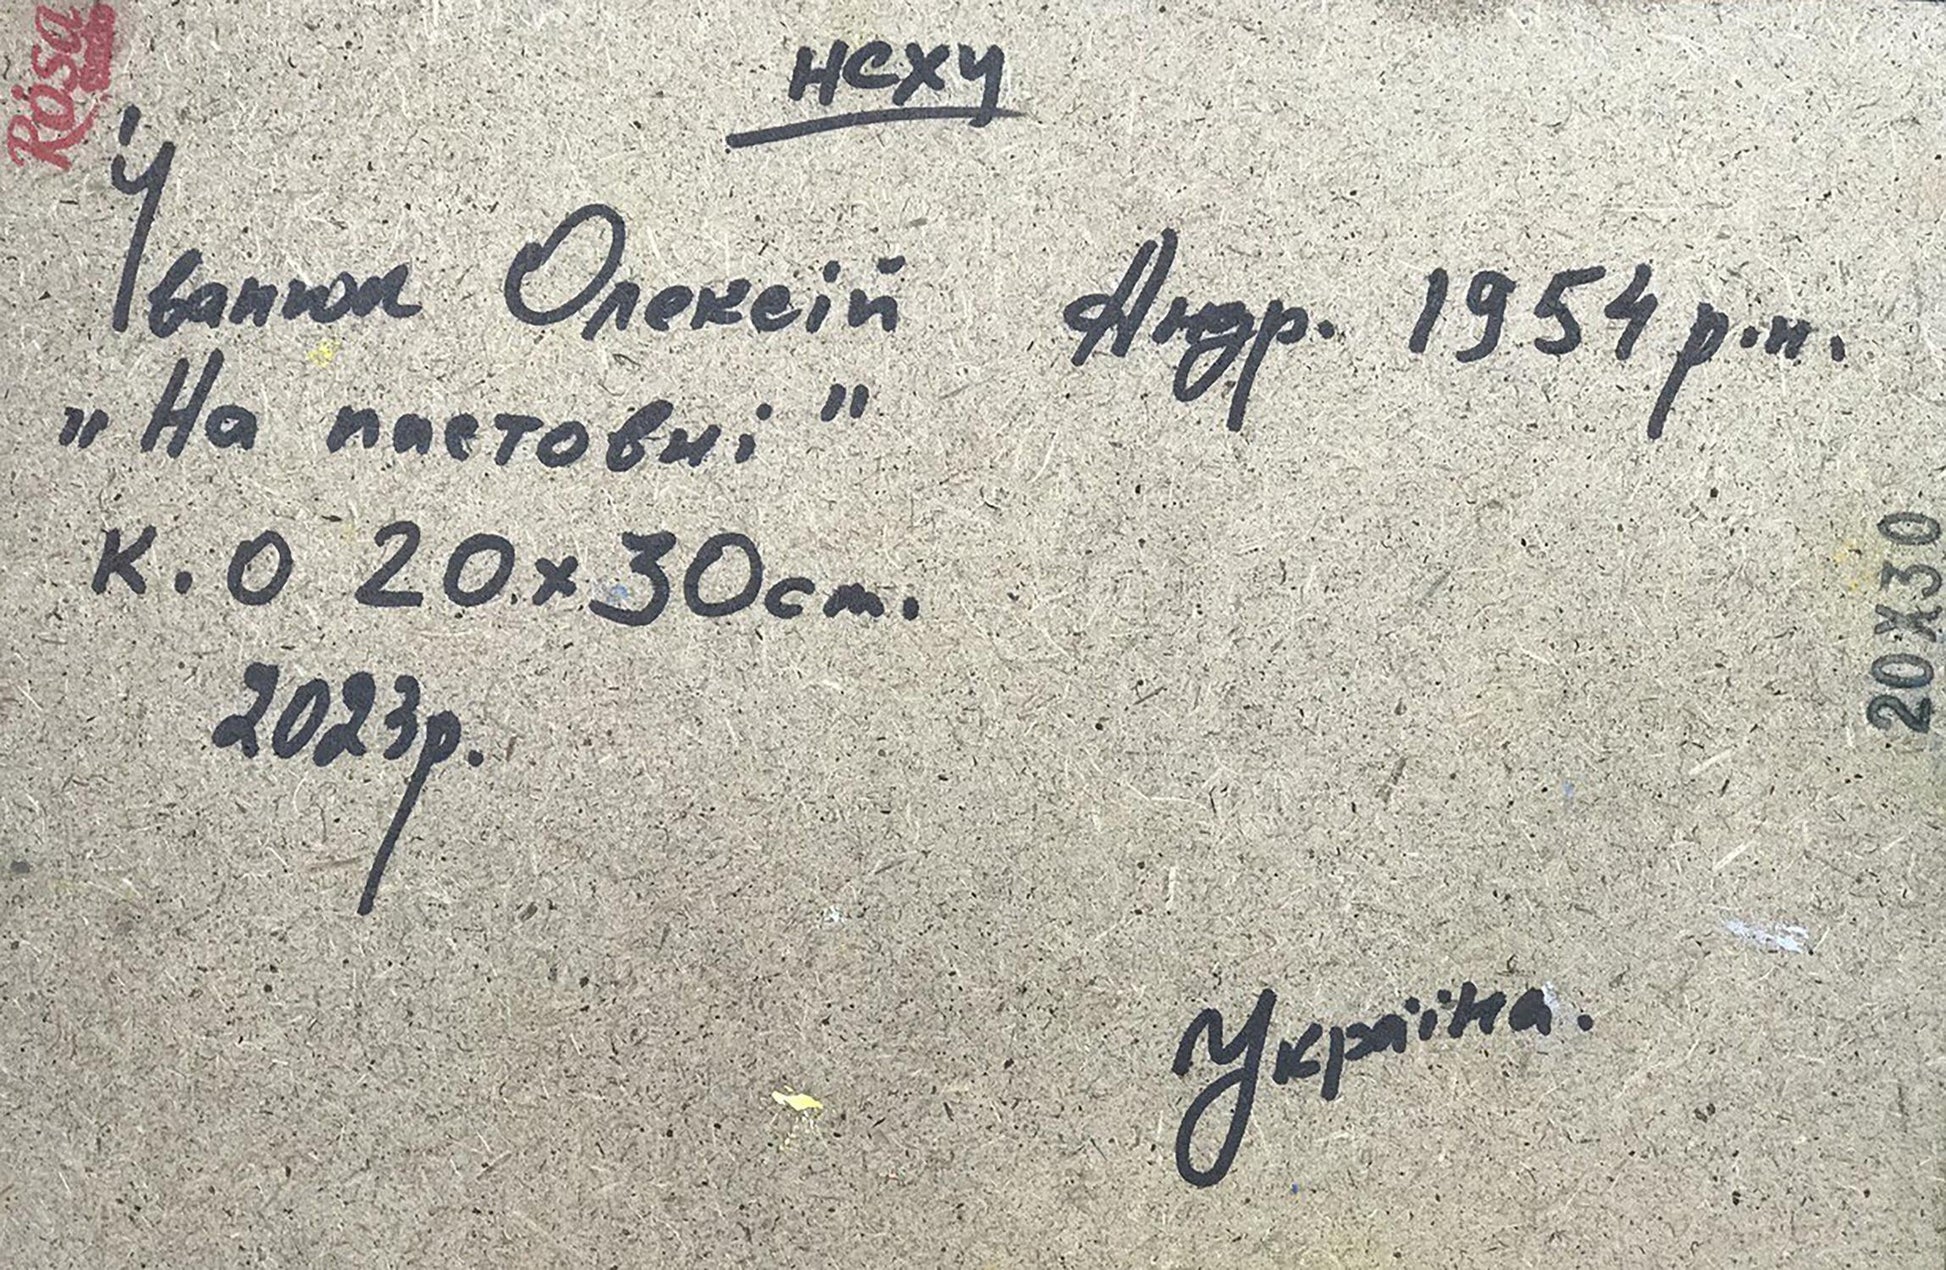 Rosa
нсху
Іванюк Олексій Андр. 1954 р.н.
„На пастовні"
К.О 20х30см.
2023р.
Україна.
20X30